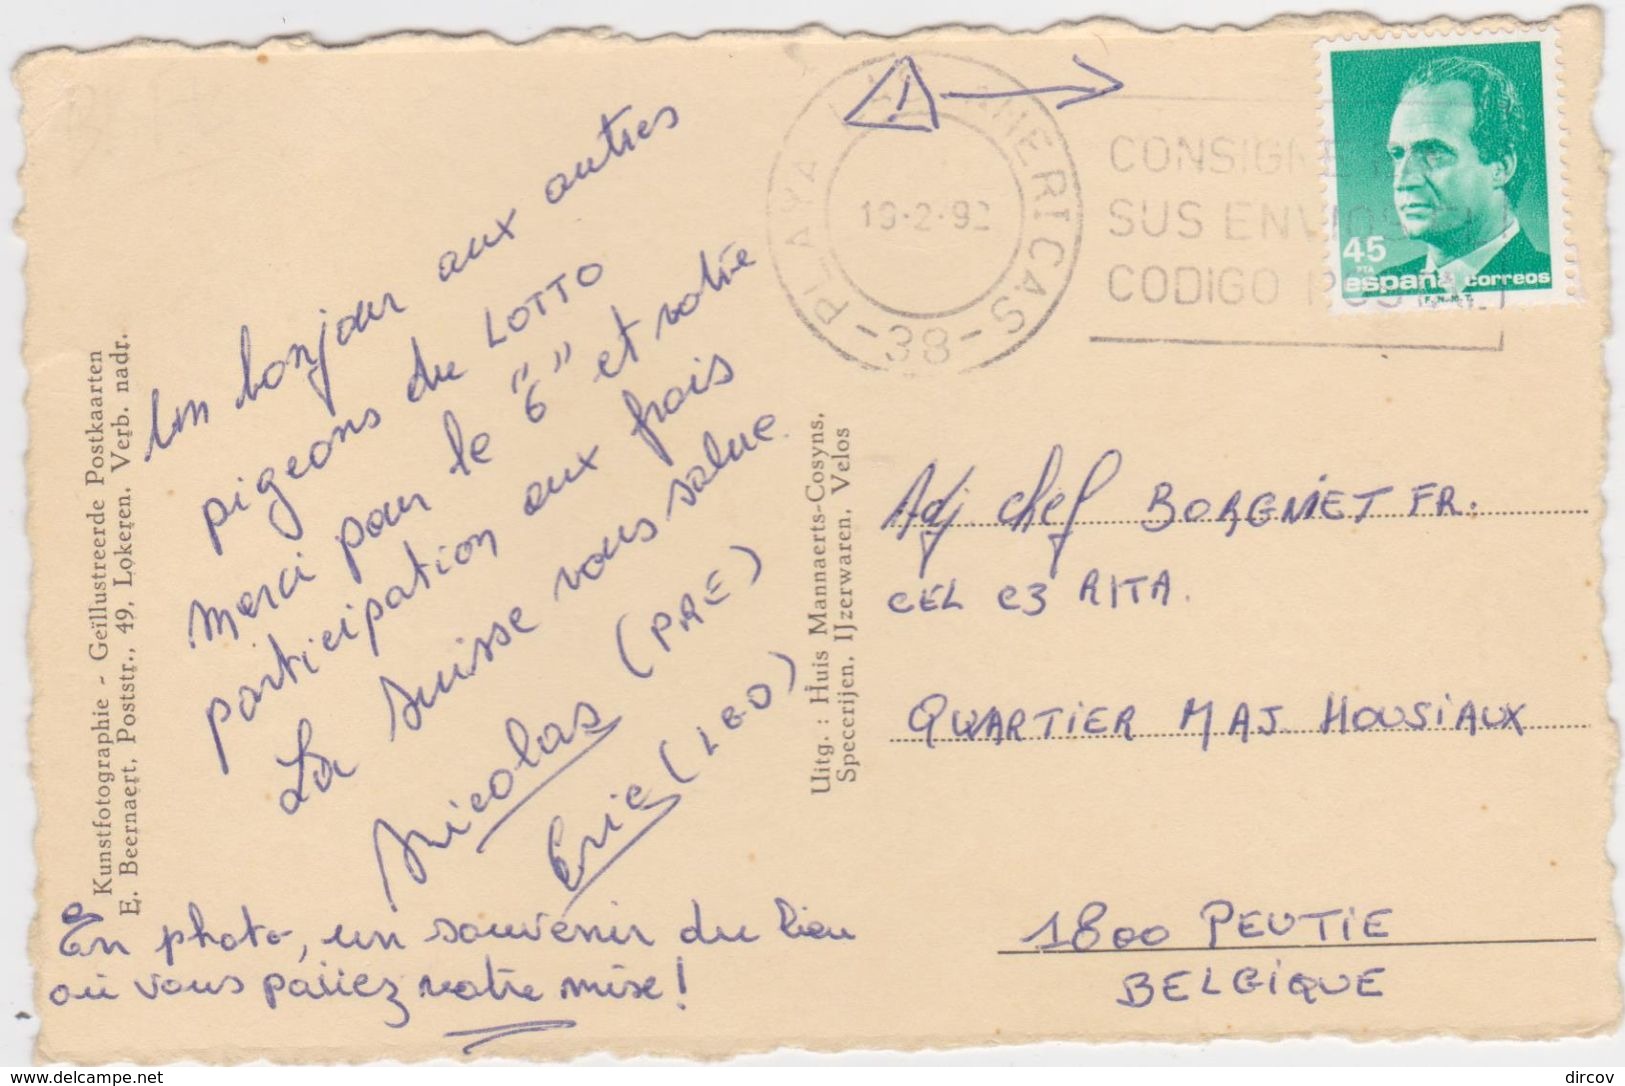 Un bonjour aux autres
pigeons du LOTTO
Merci pour le "6" et votre
participation aux frais
La Suisse vous salue.
Nicolas (PRE)
Eric (LEO)
En photo, un souvenir du lieu
où vous pariez votre mise !
Kunstfotographie - Geïllustreerde Postkaarten
E. Beernaert, Poststr., 49, Lokeren. Verb. nadr.
Uitg. : Huis Mannaerts-Cosyns,
Specerijen, IJzerwaren, Velos
PLAYA AMERICAS
-38-
19·2·92
CONSIGNE
SUS ENVIOS
CODIGO
45
PTA
españa correos
F.N.M.T.
Adj. Chef BORGNIET FR.
CEL C3 RITA.
QUARTIER MAJ HOUSIAUX
1800 PEUTIE
BELGIQUE
www.delcampe.net
dircov